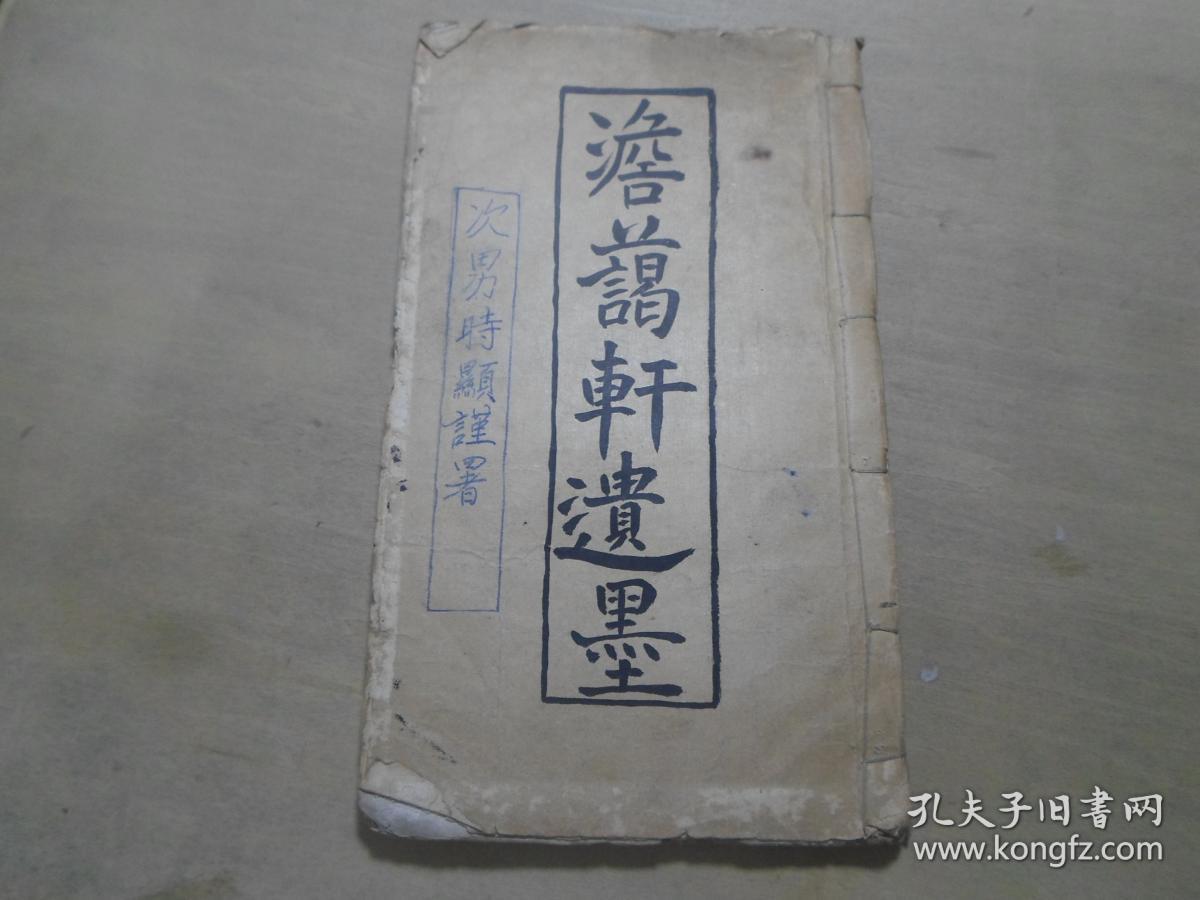 澹藹軒遺墨
次男時顯謹署
孔夫子旧書网
www.kongfz.com